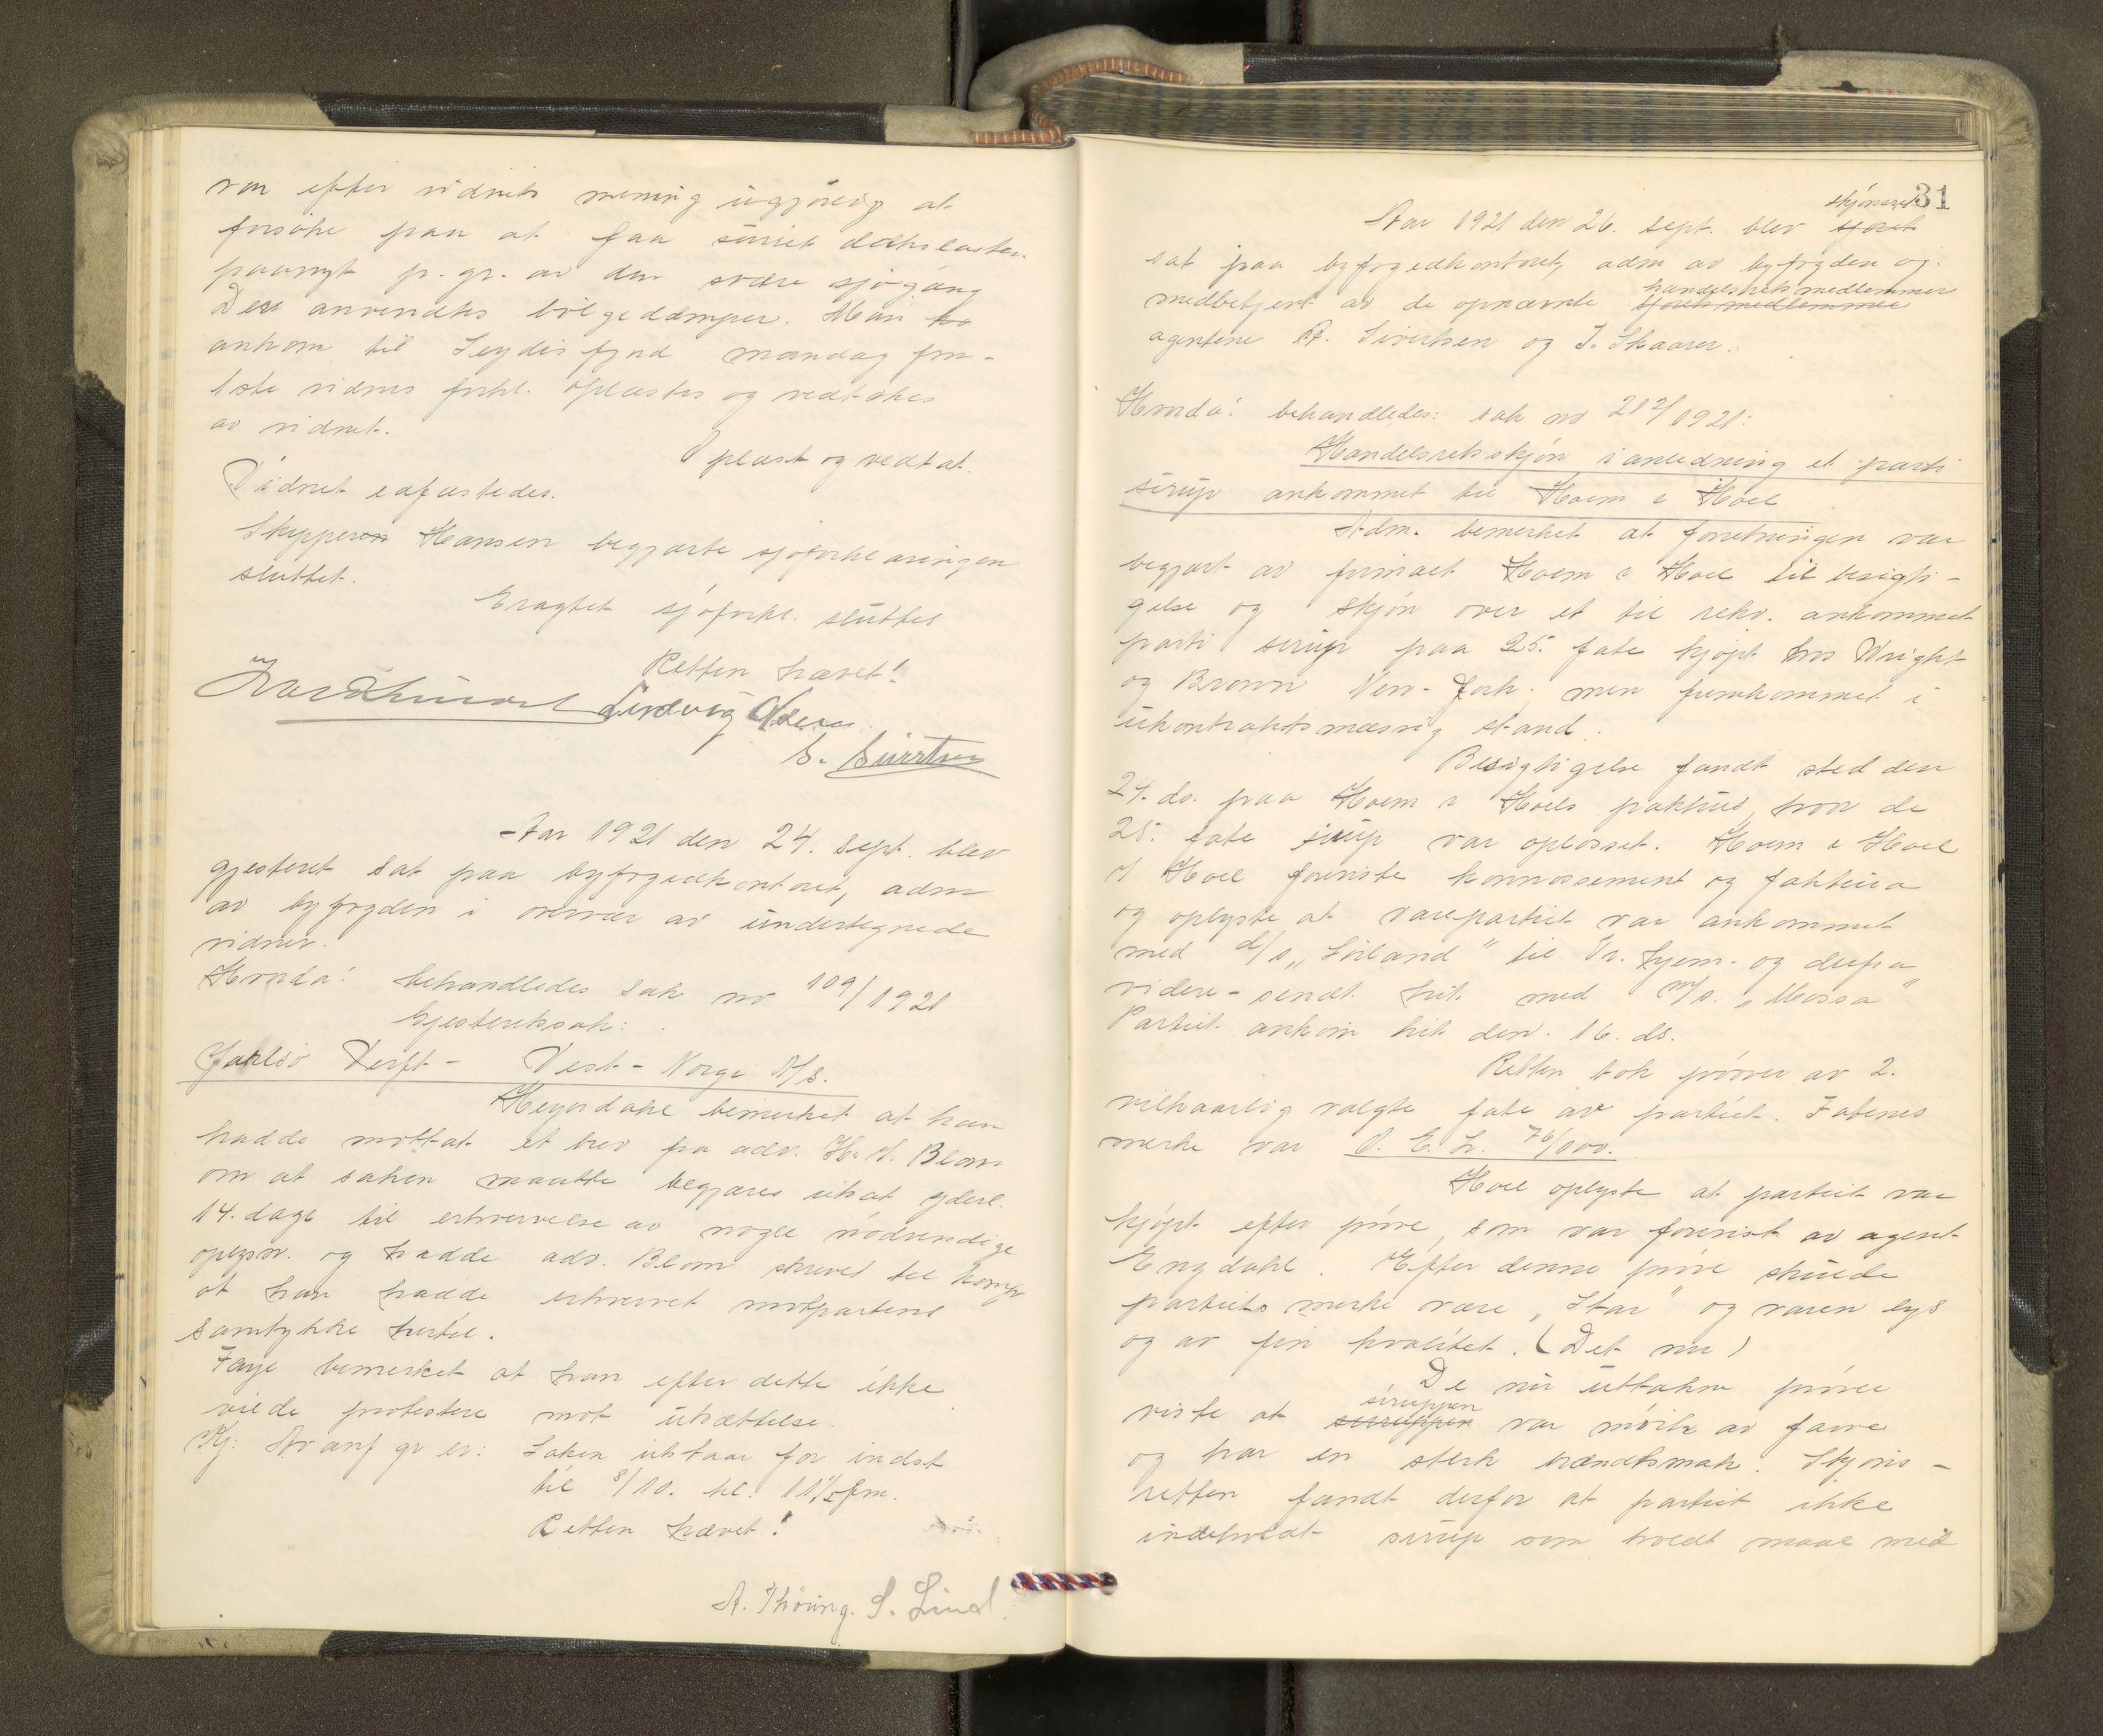 var efter vidnets mening ugjörlig at
forsöke paa at faa surret dækslasten
paanyt p. gr. av den svære sjögang
Det anvendtes bölgedæmper. Man
ankom til Seydisfjord mandag for-
1ste vidnes forkl. oplæstes og vedtokes
av vidnet.
Oplæst og vedtat.
Vidnet edfæstedes.
Skipperen Hansen begjærte sjöforklaringen
sluttet.
Eragtet sjöforkl. sluttet
Retten hævet!
Ludvig Olsen
S. Sivertsen
Aar 1921 den 24. sept. blev
gjesteret sat paa byfogedkontoret, adm
av byfogden i overvær av undertegnede
vidner.
Hvorda: behandledes sak no 109/1921
Gjesteretssak:
Jarlsö Verft - Vest-Norge A/S.
Heyerdahl bemerket at han
hadde mottat et brev fra adv. H. A. Blom
om at saken maatte begjæres utsat yderl.
14. dage til erhvervelse av nogle nödvendige
oplysn. og hadde adv. Blom skrevet til komp
at han hadde erhvervet motpartens
samtykke hertil.
Faye bemerket at han efter dette ikke
vilde protestere mot utsættelse.
Kj: Avænf gr er: Saken utstaar for indst
til 8/10. kl. 11½ fm.
Retten hævet!
A. Thöring. S. Lind
31
skjönsret
Aar 1921 den 26. sept. blev sjöret
sat paa byfogedkontoret, adm av byfogden og
handelsretsmedlemmer
medbetjent av de opnævnte sjöretsmedlemmer
agentene A. Sivertsen og J. Skaarer.
Hvorda: behandledes: sak no 212/1921:
Handelsretsskjön i anledning et parti
sirup ankommet til Hoem & Hoel
Adm. bemerket at forretningen var
begjært av firmaet Hoem & Hoel til besigti-
gelse og skjön over et til rekv. ankommet
parti sirup paa 25. fate kjöpt hos Wright
og Brown New-York, men fremkommet i
ukontraktsmæssig stand.
Besigtigelse fandt sted den
24. ds. paa Hoem & Hoels pakhus, hvor de
25. fate sirup var oplosset. Hoem & Hoel
v/ Hoel foreviste konnossement og faktura
og oplyste at varepartiet var ankommet
med d/s „Sörland" til Tr.hjem og derfra
videre-sendt hit med m/s. „Mossa"
Partiet ankom hit den 16. ds.
Retten tok pröver av 2.
vilkaarlig valgte fate av partiet. Fatenes
merke var O. E. L. 76/000.
Hoel oplyste at partiet var
kjöpt efter pröve, som var forevist av agent
Engdahl. Efter denne pröve skulde
partiets merke være „Star" og varen lys
og av fin kvalitet. (Det nu)
De nu uttakne pröver
siruppen
viste at siruppen var mörk av farve
og har en sterk brændtsmak. Skjöns-
retten fandt derfor at partiet ikke
indeholdt sirup som holdt maal med